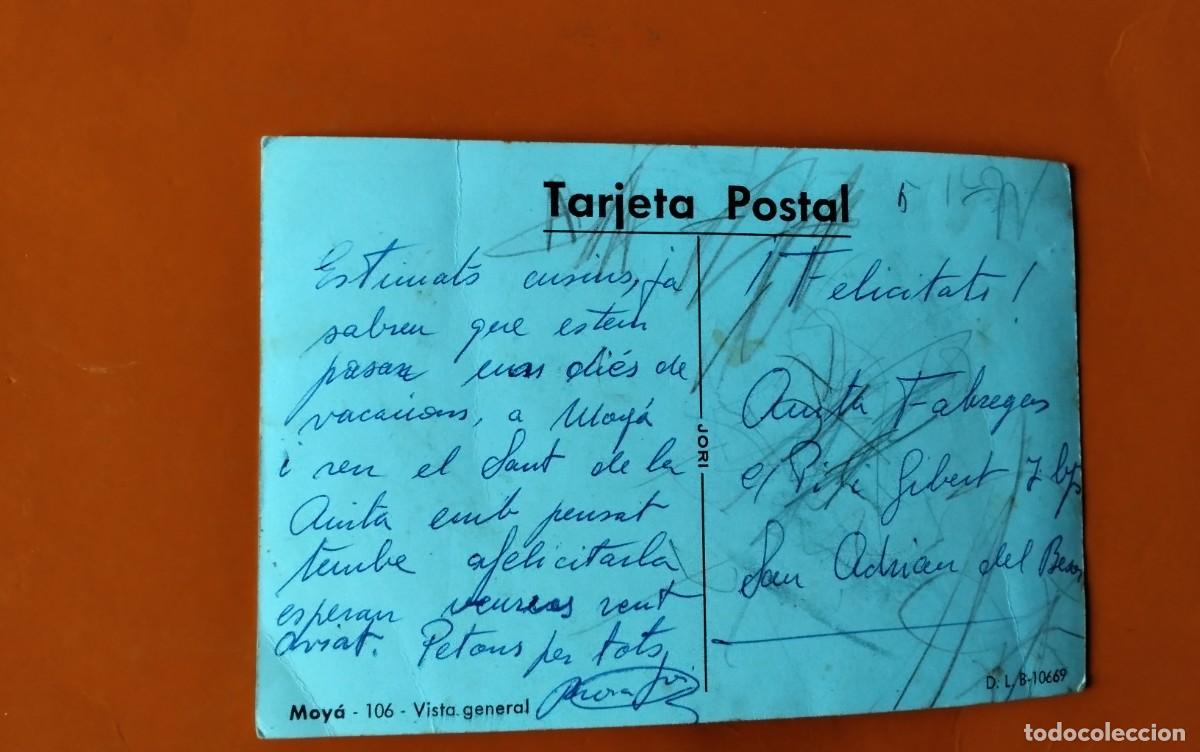 Tarjeta Postal
Estimats cusins, ja
sabreu que estem
pasan unas diés de
vacacions, a Moyá
i ven el Sant de la
Anita emb pensat
tembe afelicitarla
esperan veureos vent
aviat. Petons per tots
¡Felicitats!
Anita Fabregas
c/ Gibert 7 bjs
San Adrian del Besos
JORI
Moyá - 106 - Vista general
D. L. B-10669
todocoleccion